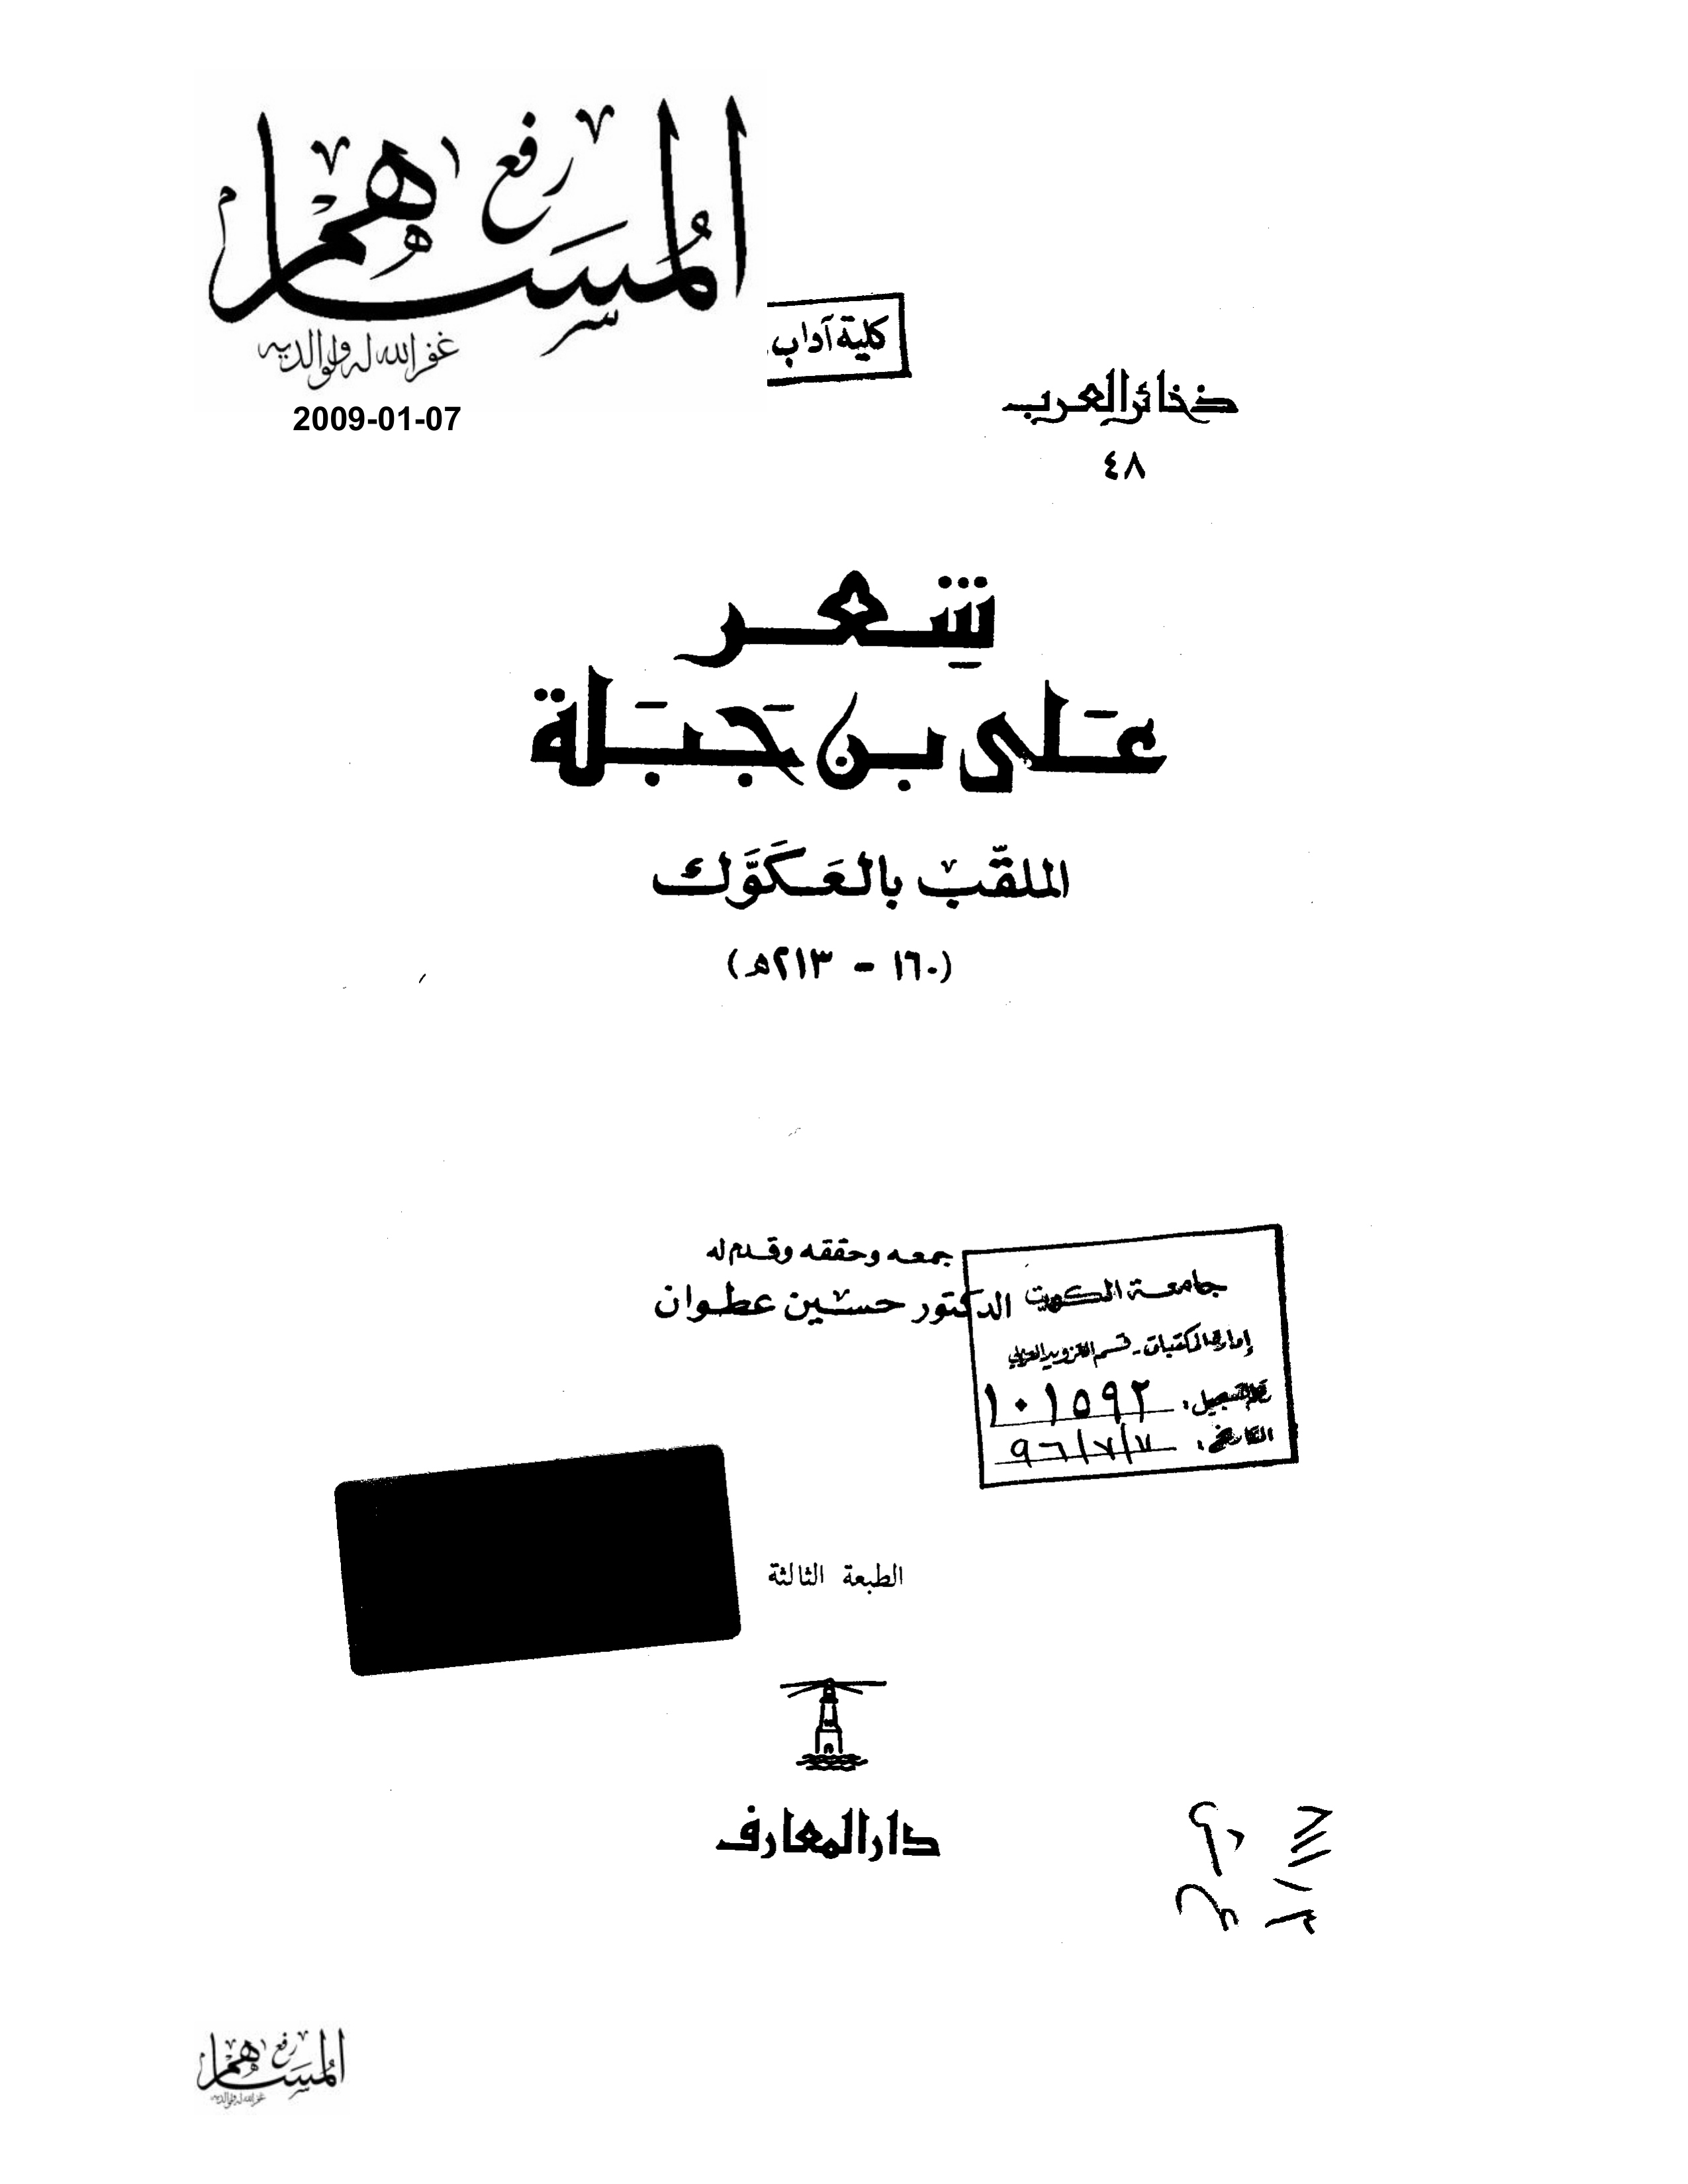 رفع
المساهم
غفر الله له ولوالديه
2009-01-07
كلية آداب
ذخائر العرب
٤٨
شِعر
عَلى بن جَبَلة
الملقّب بالعَكَوَّك
(١٦٠ - ٢١٣هـ)
جمعه وحققه وقدم له
الدكتور حسين عطوان
جامعة الكويت
إدارة المكتبات - قسم التزويد العربي
رقم التسجيل: ١٠١٥٩٢
التاريخ: ٩٦/٧/٧
الطبعة الثالثة
دار المعارف
رفع
المساهم
غفر الله له ولوالديه